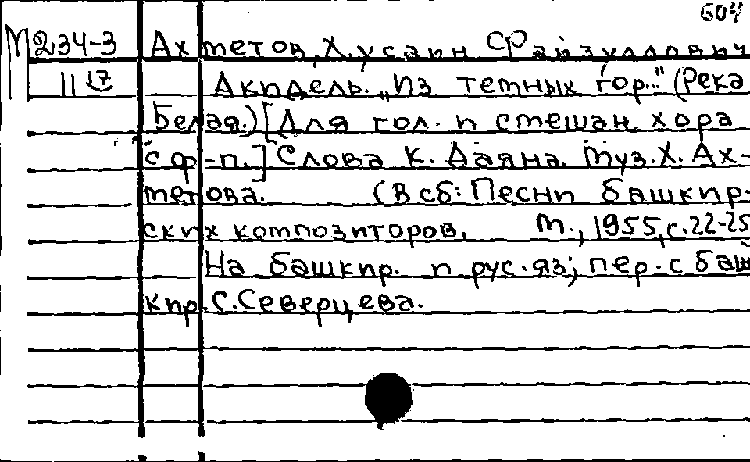 604
М234-3 Ахметов, Хусаин Файзуллович
11 17 Акидель. „Из темных гор..." (Река
Белая.) [Для гол. и смешан. хора
с ф-п.] Слова К. Даяна. Муз. Х. Ах-
метова. (В сб: Песни башкир-
ских композиторов. М., 1955, с. 22-25
На башкир. и рус. яз; пер. с баш
кир. С. Северцева.